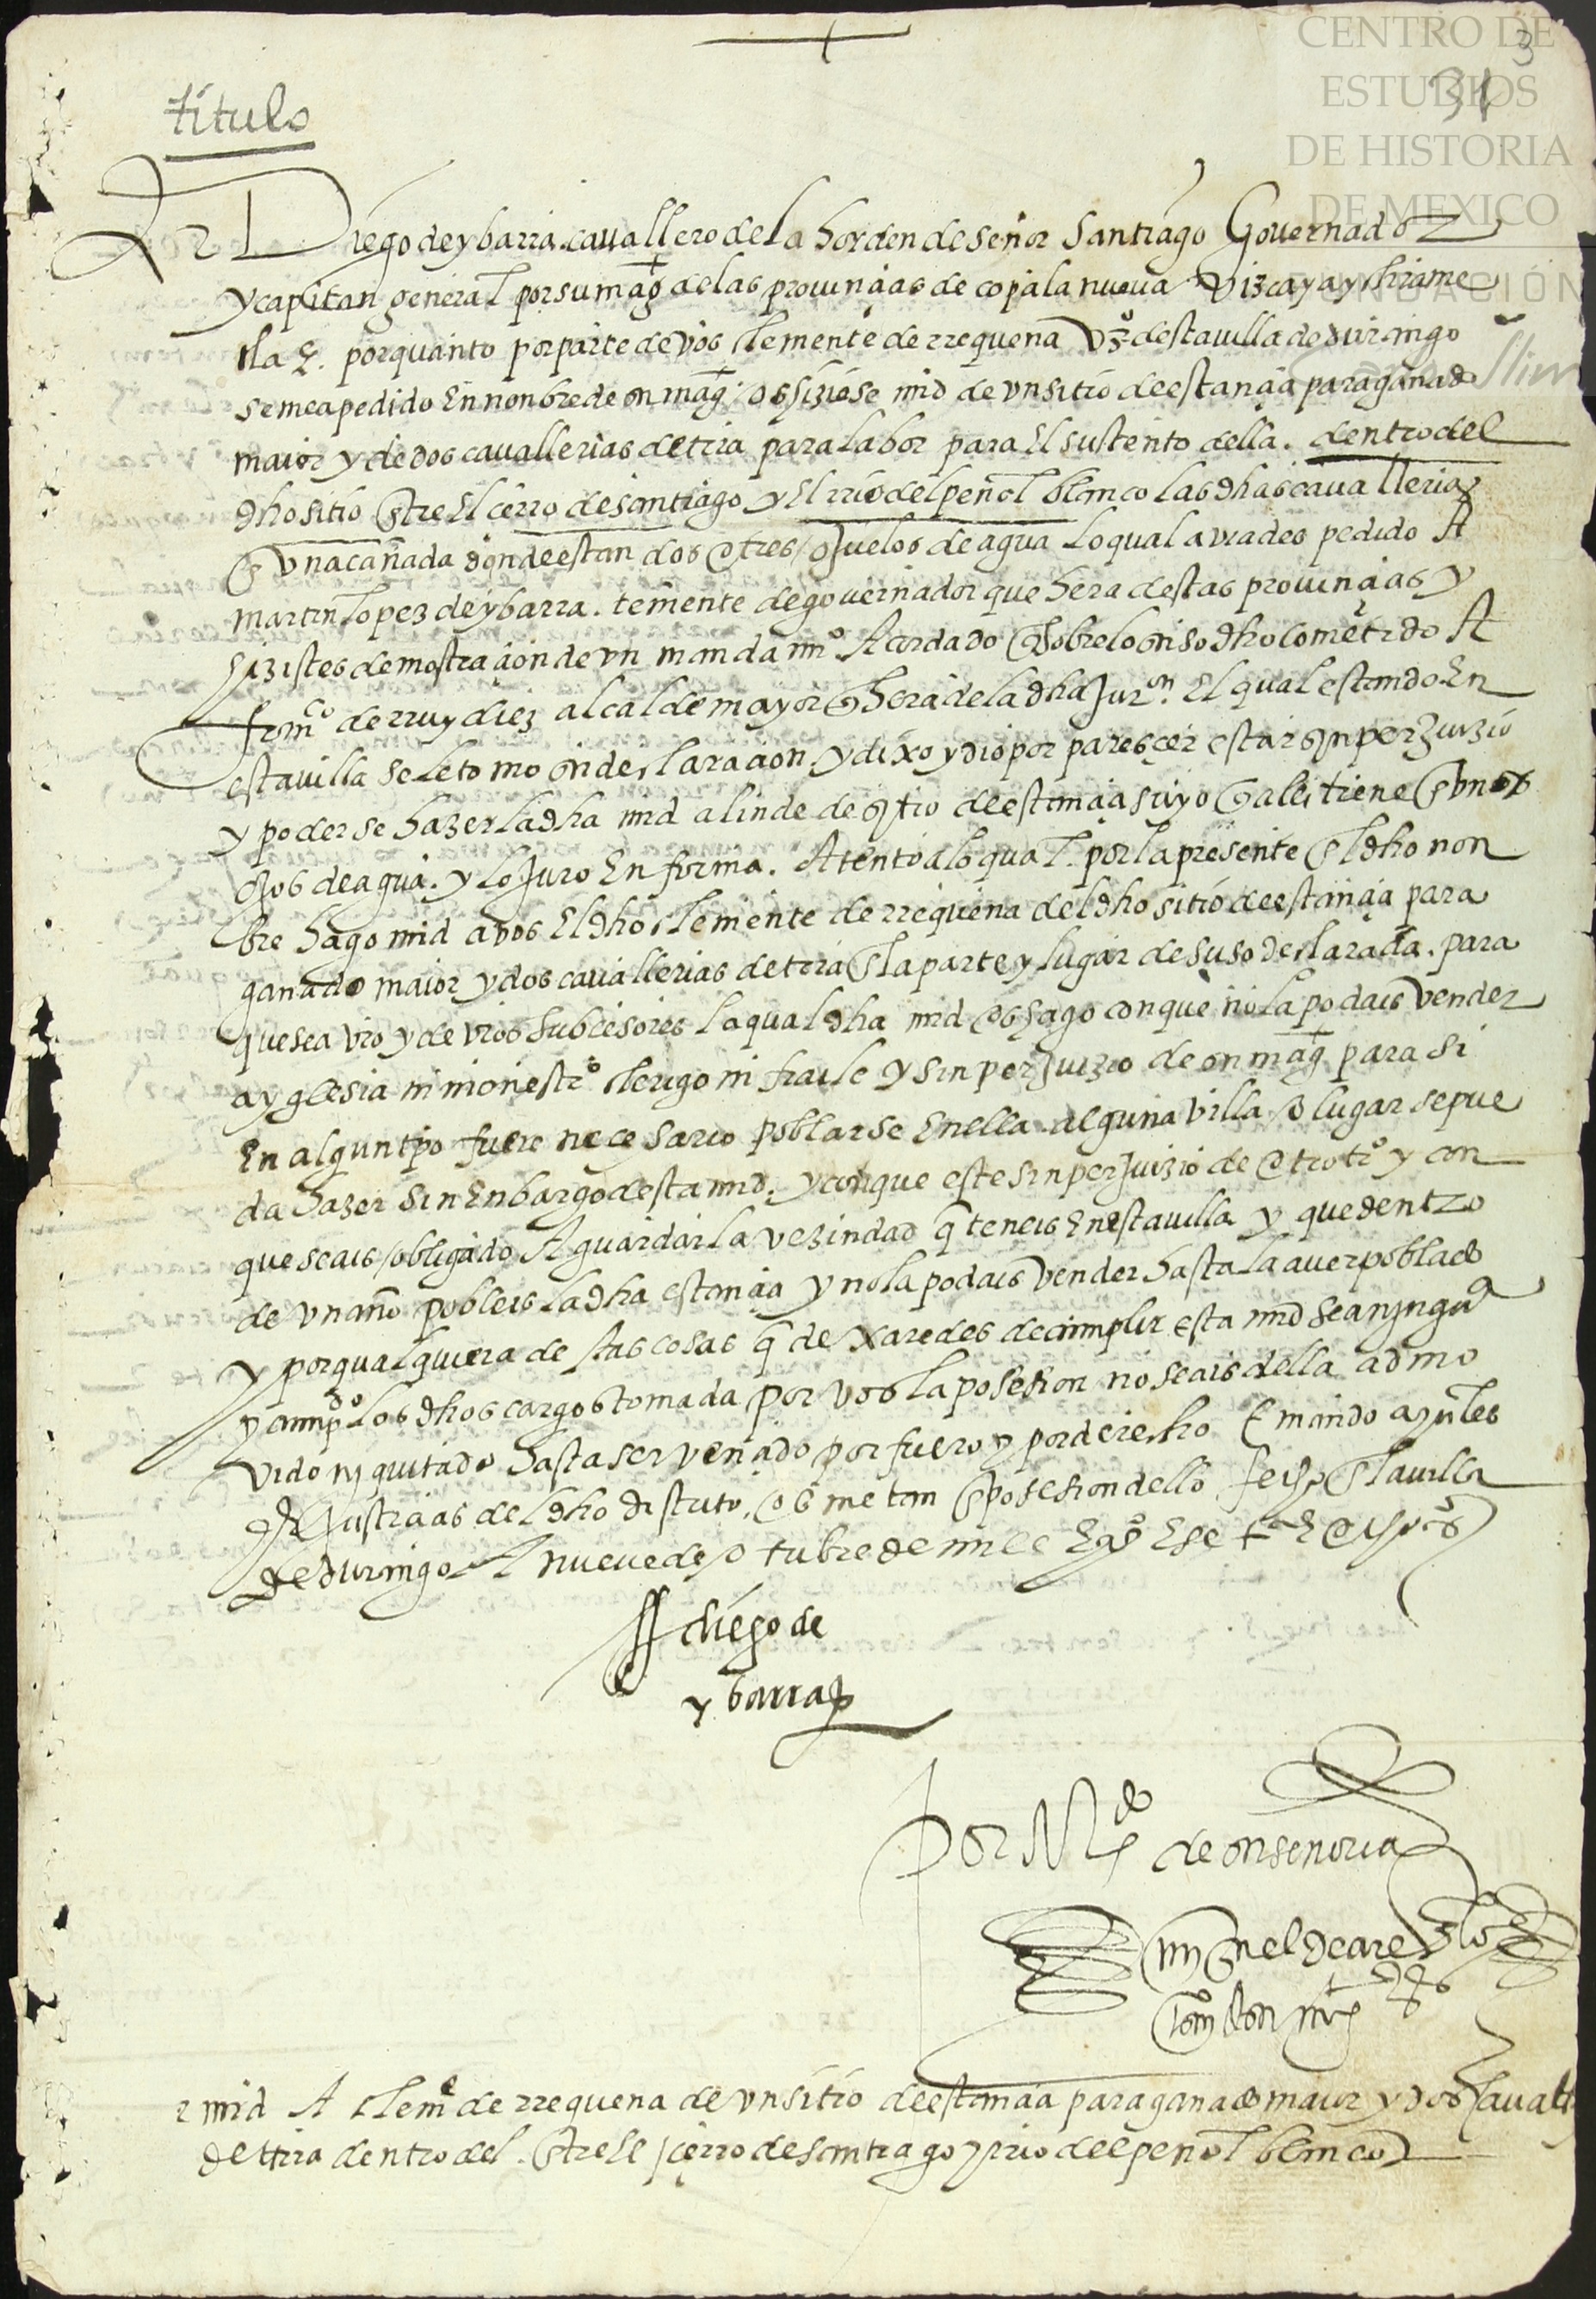 CENTRO DE
ESTUDIOS
DE HISTORIA
DE MEXICO
FUNDACIÓN
Carlos Slim
3
31
titulo
Diego de ybarra cauallero de la horden de señor Santiago Gouernador
y capitan general por su magt de las prouinçias de copala nueua Vizcaya y chiame
tla &. por quanto por parte de vos clemente de rrequena vzº desta uilla de durango
se me a pedido En nonbre de su magt os hiziese mrd de vn sitio de estançia para ganado
maior y de dos cauallerias de trra para labor para El sustento della. dentro del
dho sitio Entre El cerro de santiago y El rrio del peñol blanco las dhas cauallerias
En vna cañada donde estan dos o tres ojuelos de agua lo qual aviades pedido A
martin lopez de ybarra. teniente de gouernador que hera destas prouinçias y
hizistes demostraçion de vn mandamiº Acordado Sobre lo suso dho cometido A
franco de rruy diez alcalde mayor q hera de la dha Juron. El qual estando En
esta uilla se le tomo su declaraçion. y dixo y dio por paresçer estar sin perJuizio
y poderse hazer la dha mrd alinde de sitio de estançia suyo q alli tiene En vnos
ojos de agua. y lo Juro En forma. Atento a lo qual. por la presente En El dho non
bre hago mrd a vos El dho clemente de rrequena del dho sitio de estançia para
ganado maior y dos cauallerias de trra En la parte y lugar de suso declarada. para
que sea vro y de vros subcesores la qual dha mrd os hago con que no la podais vender
a yglesia ni monestrº clerigo ni fraile y sin perJuizio de su magt para si
En algun tpo fuere necesario poblarse En ella alguna villa o lugar se pue
da hazer sin Enbargo desta mrd. y con que este sin perJuizio de otro trº y con
que seais obligado A guardar la vezindad q teneis En esta uilla y que dentro
de vn año pobleis la dha estançia y no la podais vender hasta la auer poblado
y por qualquiera destas cosas q dexaredes de cumplir esta mrd sea ninguª
y cumpdo los dhos cargos tomada por vos la posesion no seais della admo
vido ni quitado hasta ser vençido por fuero y por derecho E mando a qules
qr Justiçias del dho distrito. os metan En posesion dello fecho En la uilla
de durango A nueue de otubre de mill E qºs E se ta E
diego de
ybarra
Por Mdo de su senoria
mrd A cleme de rrequena de vn sitio de estançia para ganado maior y dos caualls
de trra dentro del. Entre El cerro de santiago y rrio del peñol blanco